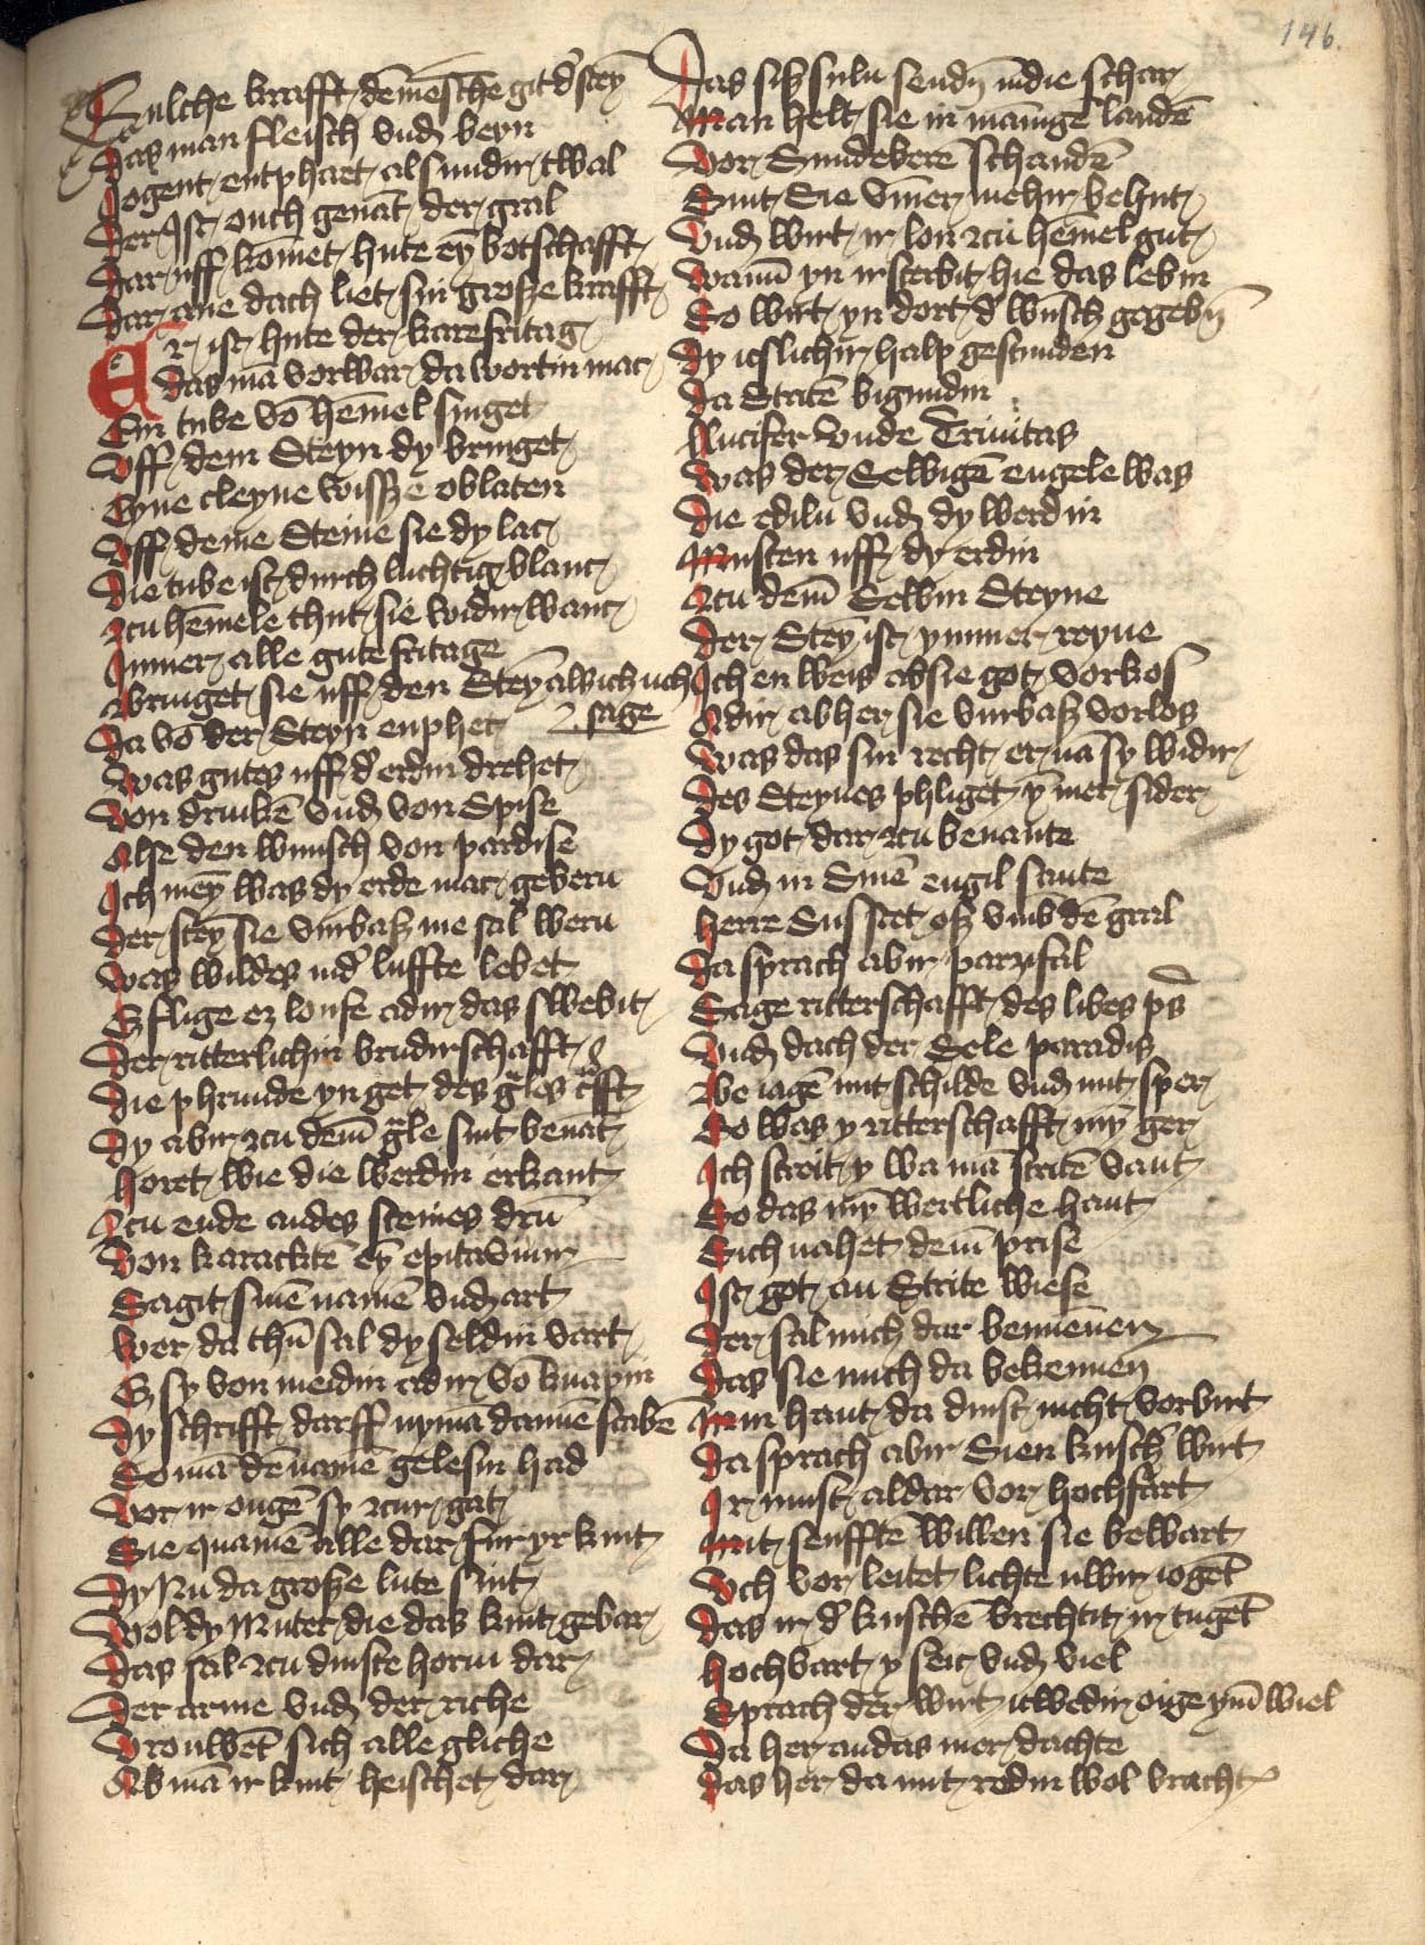 146.
Sulche krafft dē mēschē git d' steȳ
Das man fleisch vnd beyn
Jogent entphaet al sundir twal
Der Jst ouch genāt der gral
Dar uff komet hute eȳ botschafft
Dar ane dach liet sin grosze krafft
Er ist hute der karefritag
das mā vorwar da wortin mac
Ein tube vō hēmel singet
Vff dem Steyn dy bringet
Eyne cleyne wissze oblaten
Vff deme Steine sie dy lat
Die tube ist durch luchtig blanc
Zcu hēmele thut sie widir wanc
Jmmer alle gute fritage
Bringet sie uff den Steȳ als ich uch
sage
Da vō der Steyn enphet
Was gutes uff d' erdin drehet
Von drinkē vnd von Spise
Alse den wunsch von pardise
Jch meȳ was dy erde mac gebern
Der steȳ sie vurbasz me sal wern
Was wildes in d' luffte lebet
Ez flige ez loufe adir das swebit
Der ritterlichin brudirschafft
Die phrunde yn get des g'les c'fft
Dy abir zcu dem g'le sint benāt
Horet wie die werdin erkant
Zcu ende an des steines drū
Von karacktē eȳ epitavium
Sagit sinē namē vnd art
Wer da thū sal dy seldin vart
Ez sy von meidin adir vō knapin
Dy schrifft darff nymā dannē scabē
So mā dē namē gelesin had
Vor ir ougē sy zcur gat
Sie quamē alle dar fur yr kint
Dy Nu da grosze lute sint
Wol dy Muter die das kint gebar
Das sal zcu dinste horin dar
Der arme vnd der riche
Vrouwēt sich alle gliche
Ab mā ir kint heischet dar
Das sisz suln sendn̄ in die schar
Man helt sie in mānigē landē
Vor Sundeberē schandē
Sint Sie vm̄er mehir behut
Vnd wirt ir lon zcu hēmel gut
Wannē yn irstirbit hie das lebin
So wirt yn dort d' wūsch gegebn̄
Dy ieslichir halp gestunden
Da Stritē bigundin
Lucifer vnde Trinitas
Was der Selbigē engele was
Die ediln vnd dy werdin
Musten uff dy erdin
Zcu dem Selbin Steyne
Der Steȳ ist ymmer reyne
Jch en weis ab sie got vorkos
Adir ab her sie vurbasz vorlos
Was das sin recht er nā sy widir
Des Steynes phliget ȳmer sider
Dy got dar zcu benante
Vnd in Sinē engil sante
Herre Sus stet ez vmb dē gral
Da sprach abir parzifal
Sage ritterschafft des libes p's
Vnd dach der Sele paradis
Be iagē mit schilde vnd mit sper
So was y ritterschafft mȳ ger
Jch streit y wa mā stritē vant
So das mȳ wertliche hant
Sich nahet dem prise
Jst got an Strite wiese
Der sal mich dar bennenen
Das sie mich da bekennen
Min hant da dinst nicht vorbirt
Da sprach abir Sien kusch' wirt
Jr must aldar vor hochfart
Mit senfftē willen sie bewart
Vch vor leitet lichte uwir iogēt
Das ir d' kuschē brechtit ir tugēt
Hochvart y seic vnd viel
Sprach der wirt
Da her an das mer dachte
Das her da mit redin wol bracht'